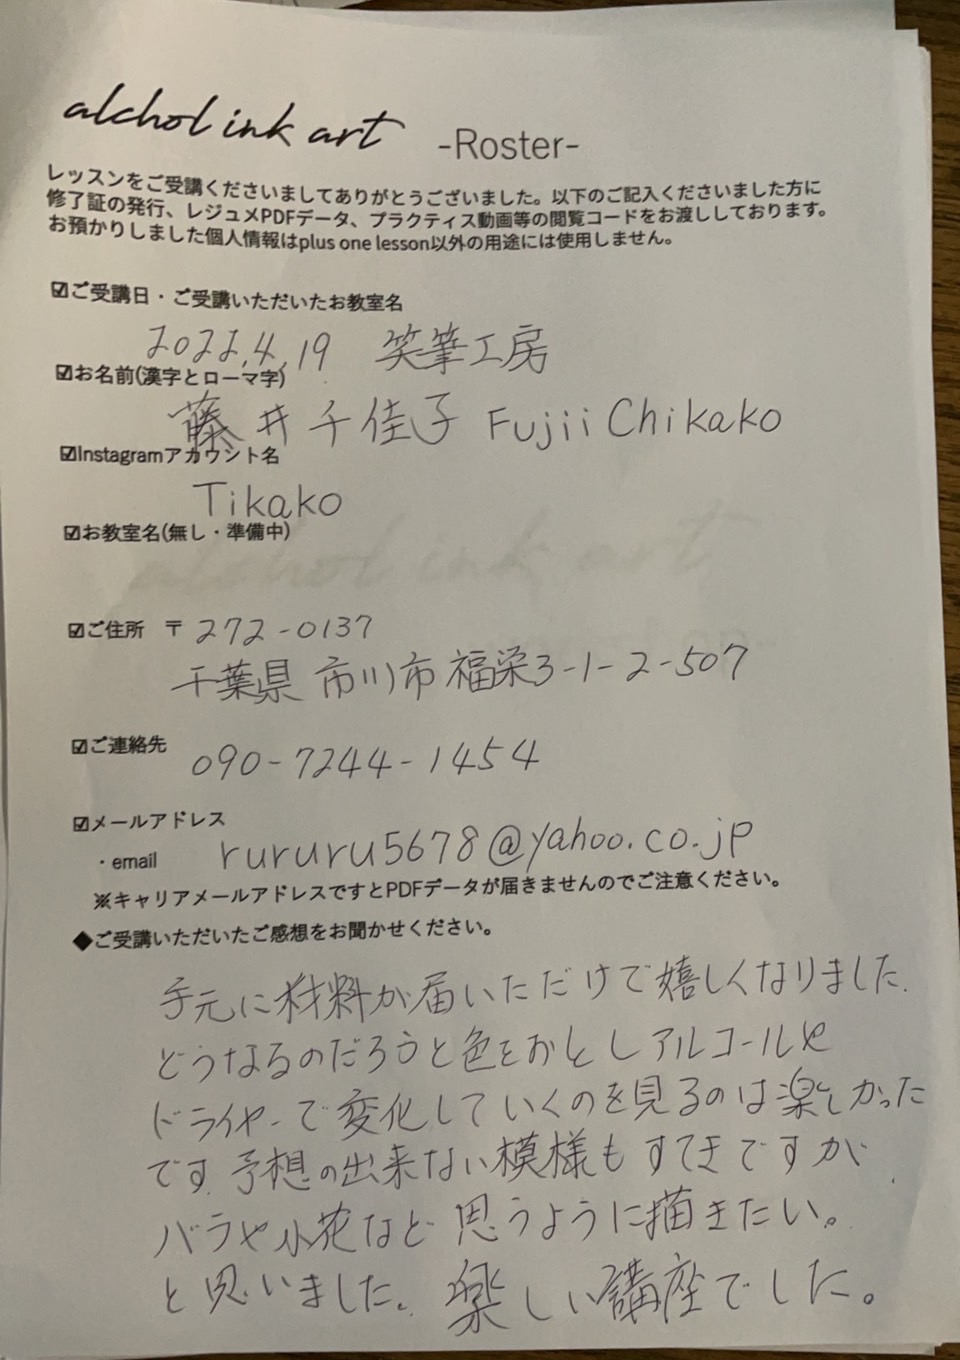 alchol ink art -Roster-
レッスンをご受講くださいましてありがとうございました。以下のご記入くださいました方に
修了証の発行、レジュメPDFデータ、プラクティス動画等の閲覧コードをお渡ししております。
お預かりしました個人情報はplus one lesson以外の用途には使用しません。
☑ご受講日・ご受講いただいたお教室名
2022.4.19 笑筆工房
☑お名前(漢字とローマ字)
藤井千佳子 Fujii Chikako
☑Instagramアカウント名
Tikako
☑お教室名(無し・準備中)
alchol ink art
☑ご住所 〒272-0137
千葉県市川市福栄3-1-2-507
☑ご連絡先
090-7244-1454
☑メールアドレス
・email rururu5678@yahoo.co.jp
※キャリアメールアドレスですとPDFデータが届きませんのでご注意ください。
◆ご受講いただいたご感想をお聞かせください。
手元に材料が届いただけで嬉しくなりました.
どうなるのだろうと色をおとしアルコールや
ドライヤーで変化していくのを見るのは楽しかった
です.予想の出来ない模様もすてきですが
バラや小花など思うように描きたい。
と思いました.楽しい講座でした。